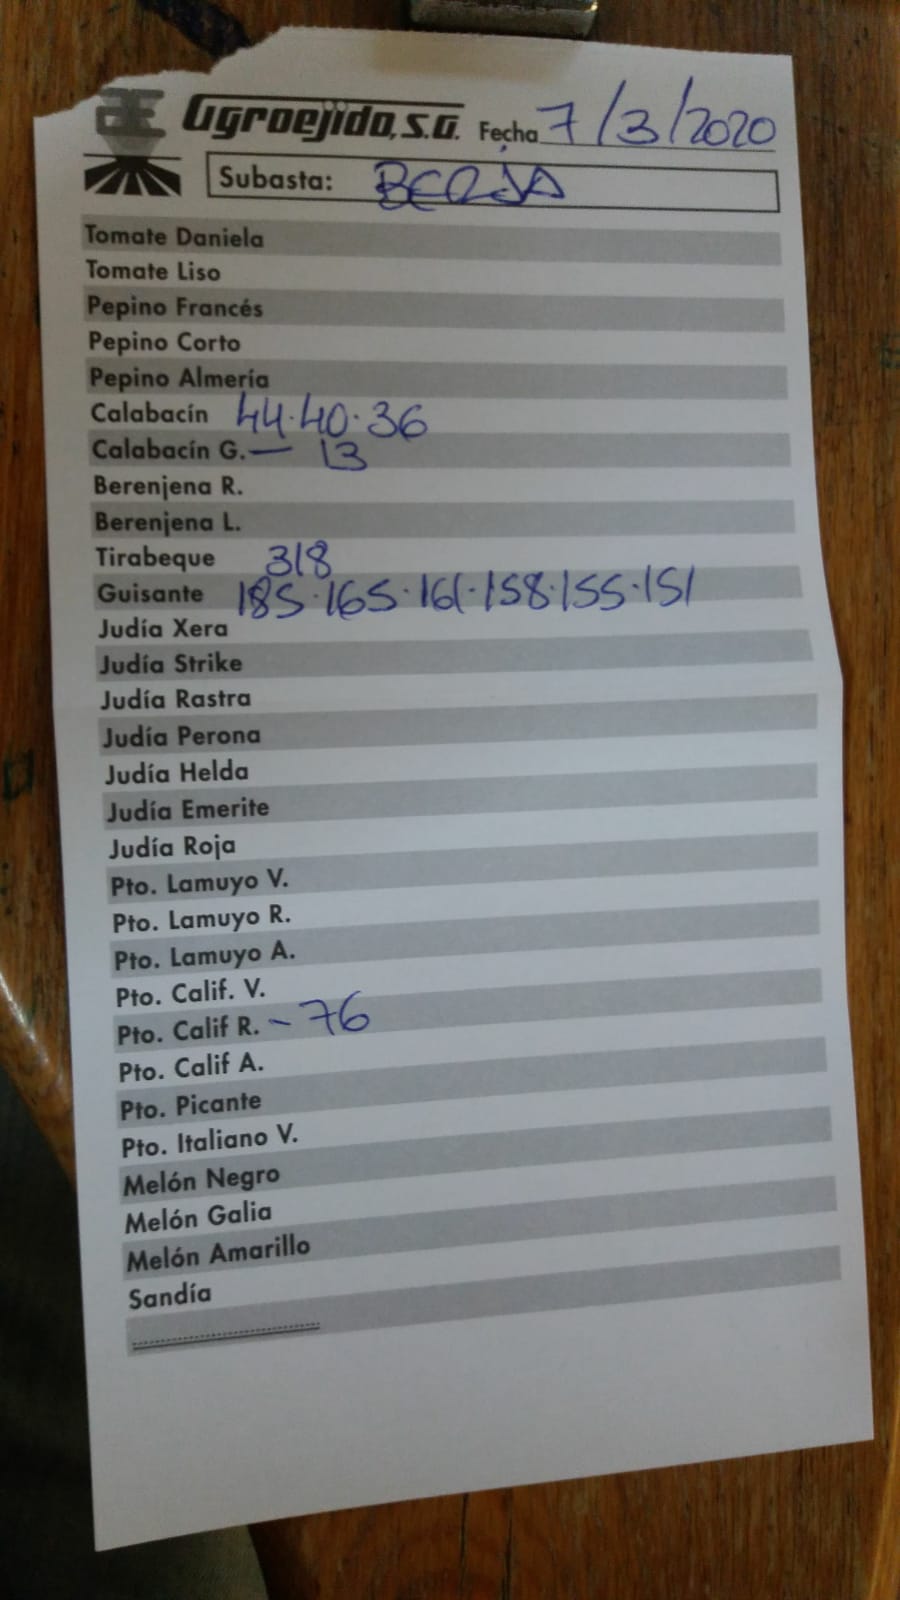 agroejido, s.a. Fecha 7/3/2020
Subasta: BERJA
Tomate Daniela
Tomate Liso
Pepino Francés
Pepino Corto
Pepino Almería
Calabacín 44·40·36
Calabacín G. — 13
Berenjena R.
Berenjena L.
Tirabeque 318
Guisante 185·165·161·158·155·151
Judía Xera
Judía Strike
Judía Rastra
Judía Perona
Judía Helda
Judía Emerite
Judía Roja
Pto. Lamuyo V.
Pto. Lamuyo R.
Pto. Lamuyo A.
Pto. Calif. V.
Pto. Calif R. - 76
Pto. Calif A.
Pto. Picante
Pto. Italiano V.
Melón Negro
Melón Galia
Melón Amarillo
Sandía